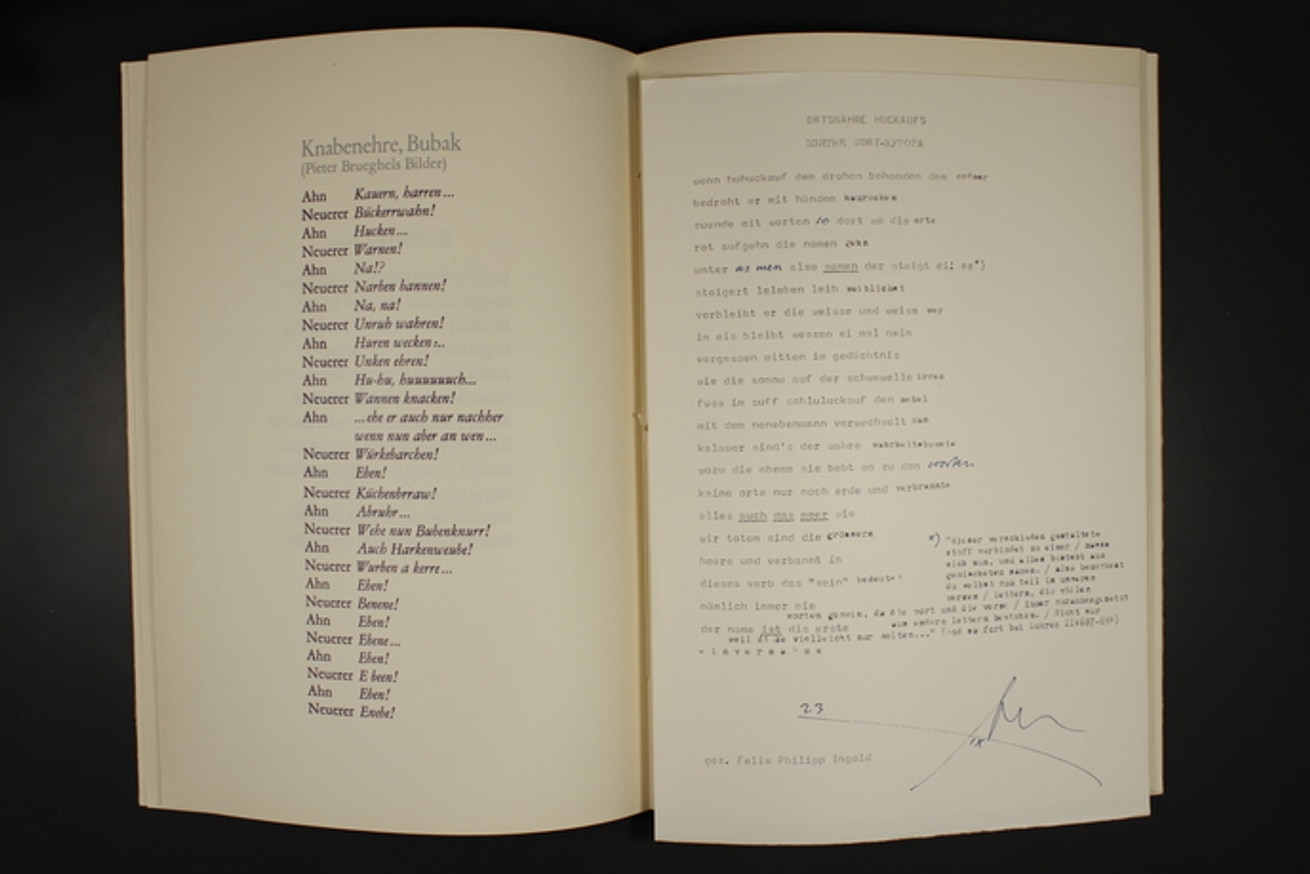 Knabenehre, Bubak
(Pieter Brueghels Bilder)
Ahn Kauern, harren...
Neuerer Bückerrwahn!
Ahn Hucken...
Neuerer Warnen!
Ahn Na!?
Neuerer Narben bannen!
Ahn Na, na!
Neuerer Unruh wahren!
Ahn Huren wecken...
Neuerer Unken ehren!
Ahn Hu-hu, huuuuuuch...
Neuerer Wannen knacken!
Ahn ...ehe er auch nur nachher
wenn nun aber an wen...
Neuerer Würkebarchen!
Ahn Eben!
Neuerer Küchenbrraw!
Ahn Abruhr...
Neuerer Wehe nun Bubenknurr!
Ahn Auch Harkenweube!
Neuerer Wurben a kerre...
Ahn Eben!
Neuerer Benene!
Ahn Eben!
Neuerer Ebene...
Ahn Eben!
Neuerer E been!
Ahn Eben!
Neuerer Enebe!
ORTSNAHME HUCKAUFS
wenn huhuckauf dem drohen behenden den
bedroht er mit händen
zuende mit worten so dort wo die orte
rot aufgehn die namen
unter as men also namen der steigt ei! er*)
steigert leleben leih weiblichst
verbleibt er die weisse und weise wer
im eis bleibt wessen ei mal nein
vergessen mitten im gedächtnis
wie die sonne auf der schwewelle irren
fuss im suff schluluckauf den nabel
mit dem nenebenmann verwechselt man
kalauer sind's der wahre wahrheitsbeweis
wozu die ebene nie bebt wo zu den worten
keine orte nur noch erde und verbrannte
alles auch das meer wie
wir toten sind die grössern
heere und verbannt in
dieses verb das "sein" bedeutet
nämlich immer nie
der name ist die erste
einvernahme
*) "dieser verschieden gestaltete
stoff verbindet zu einer / masse
sich nun, und alles besteht aus
gemischeten samen. / also bemerkest
du selbst zum teil in unseren
versen / lettern, die vielen
worten gemein, da die wort und die verse / immer zusammengesetzt
aus andern lettern bestehen. / Nicht nur
weil vielleicht nur selten..." (und so fort bei Lukrez II:687-690)
23
IX
gez. Felix Philipp Ingold